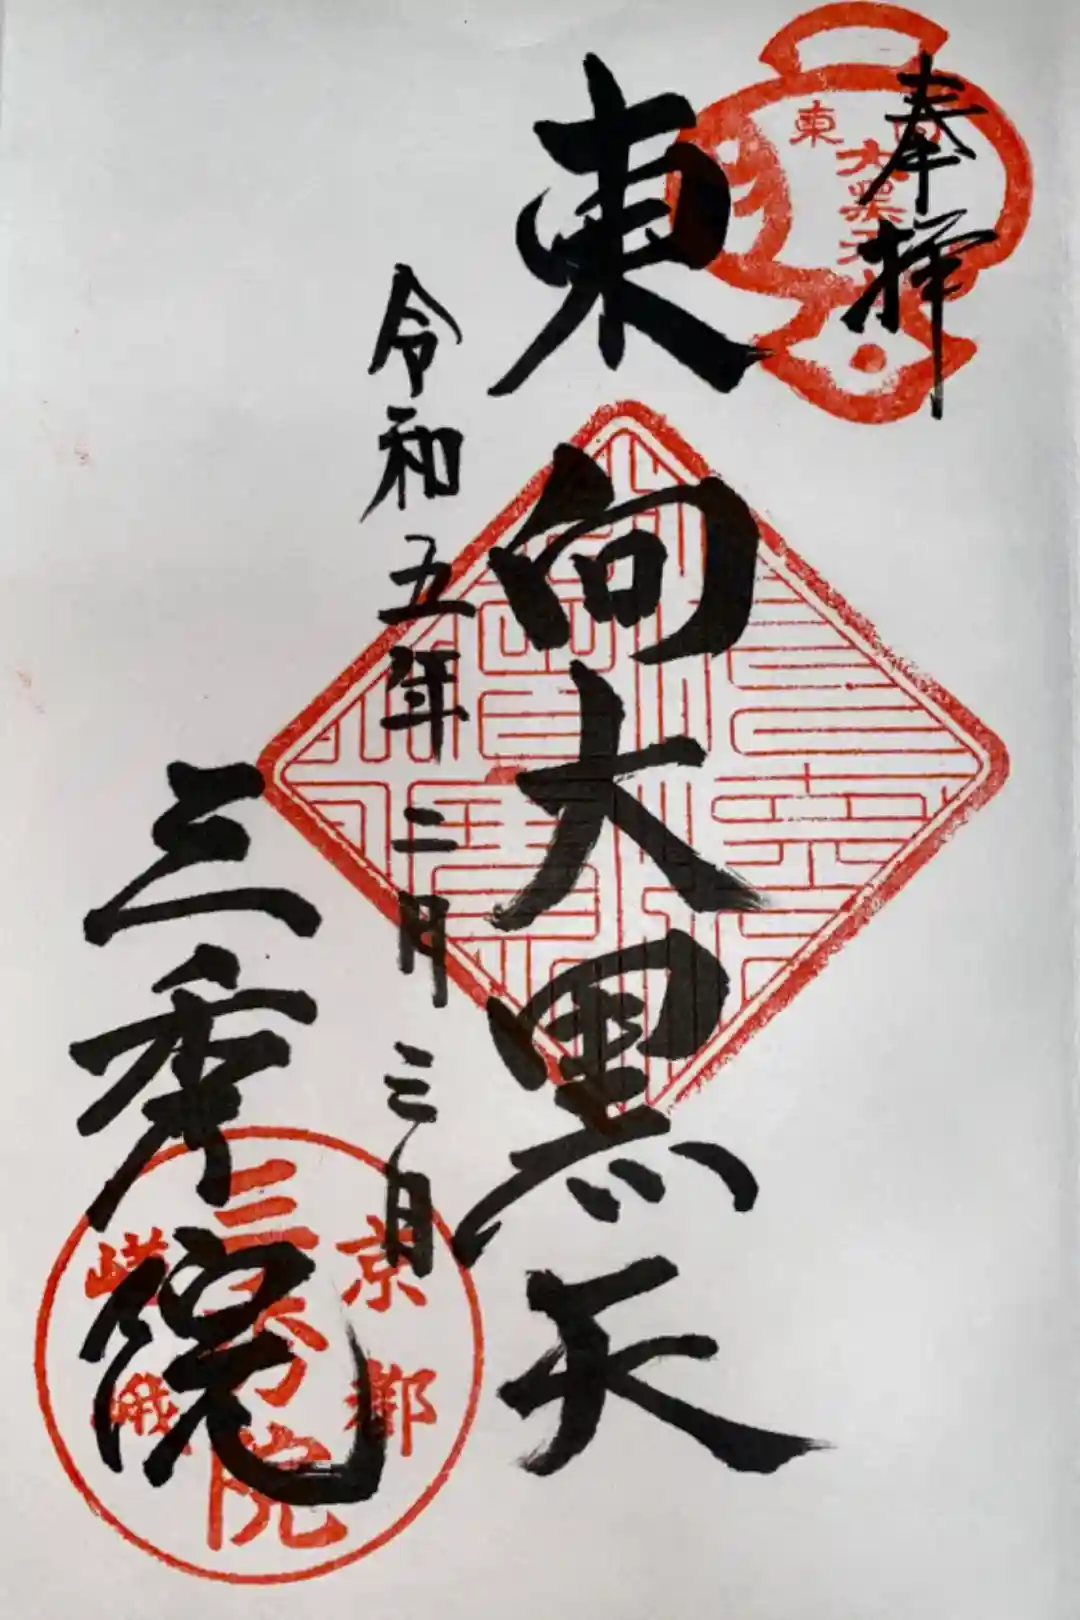 奉拝
東向
大黒天
東向大黒天
令和五年二月三日
三秀院
京都
三秀院
嵯峨